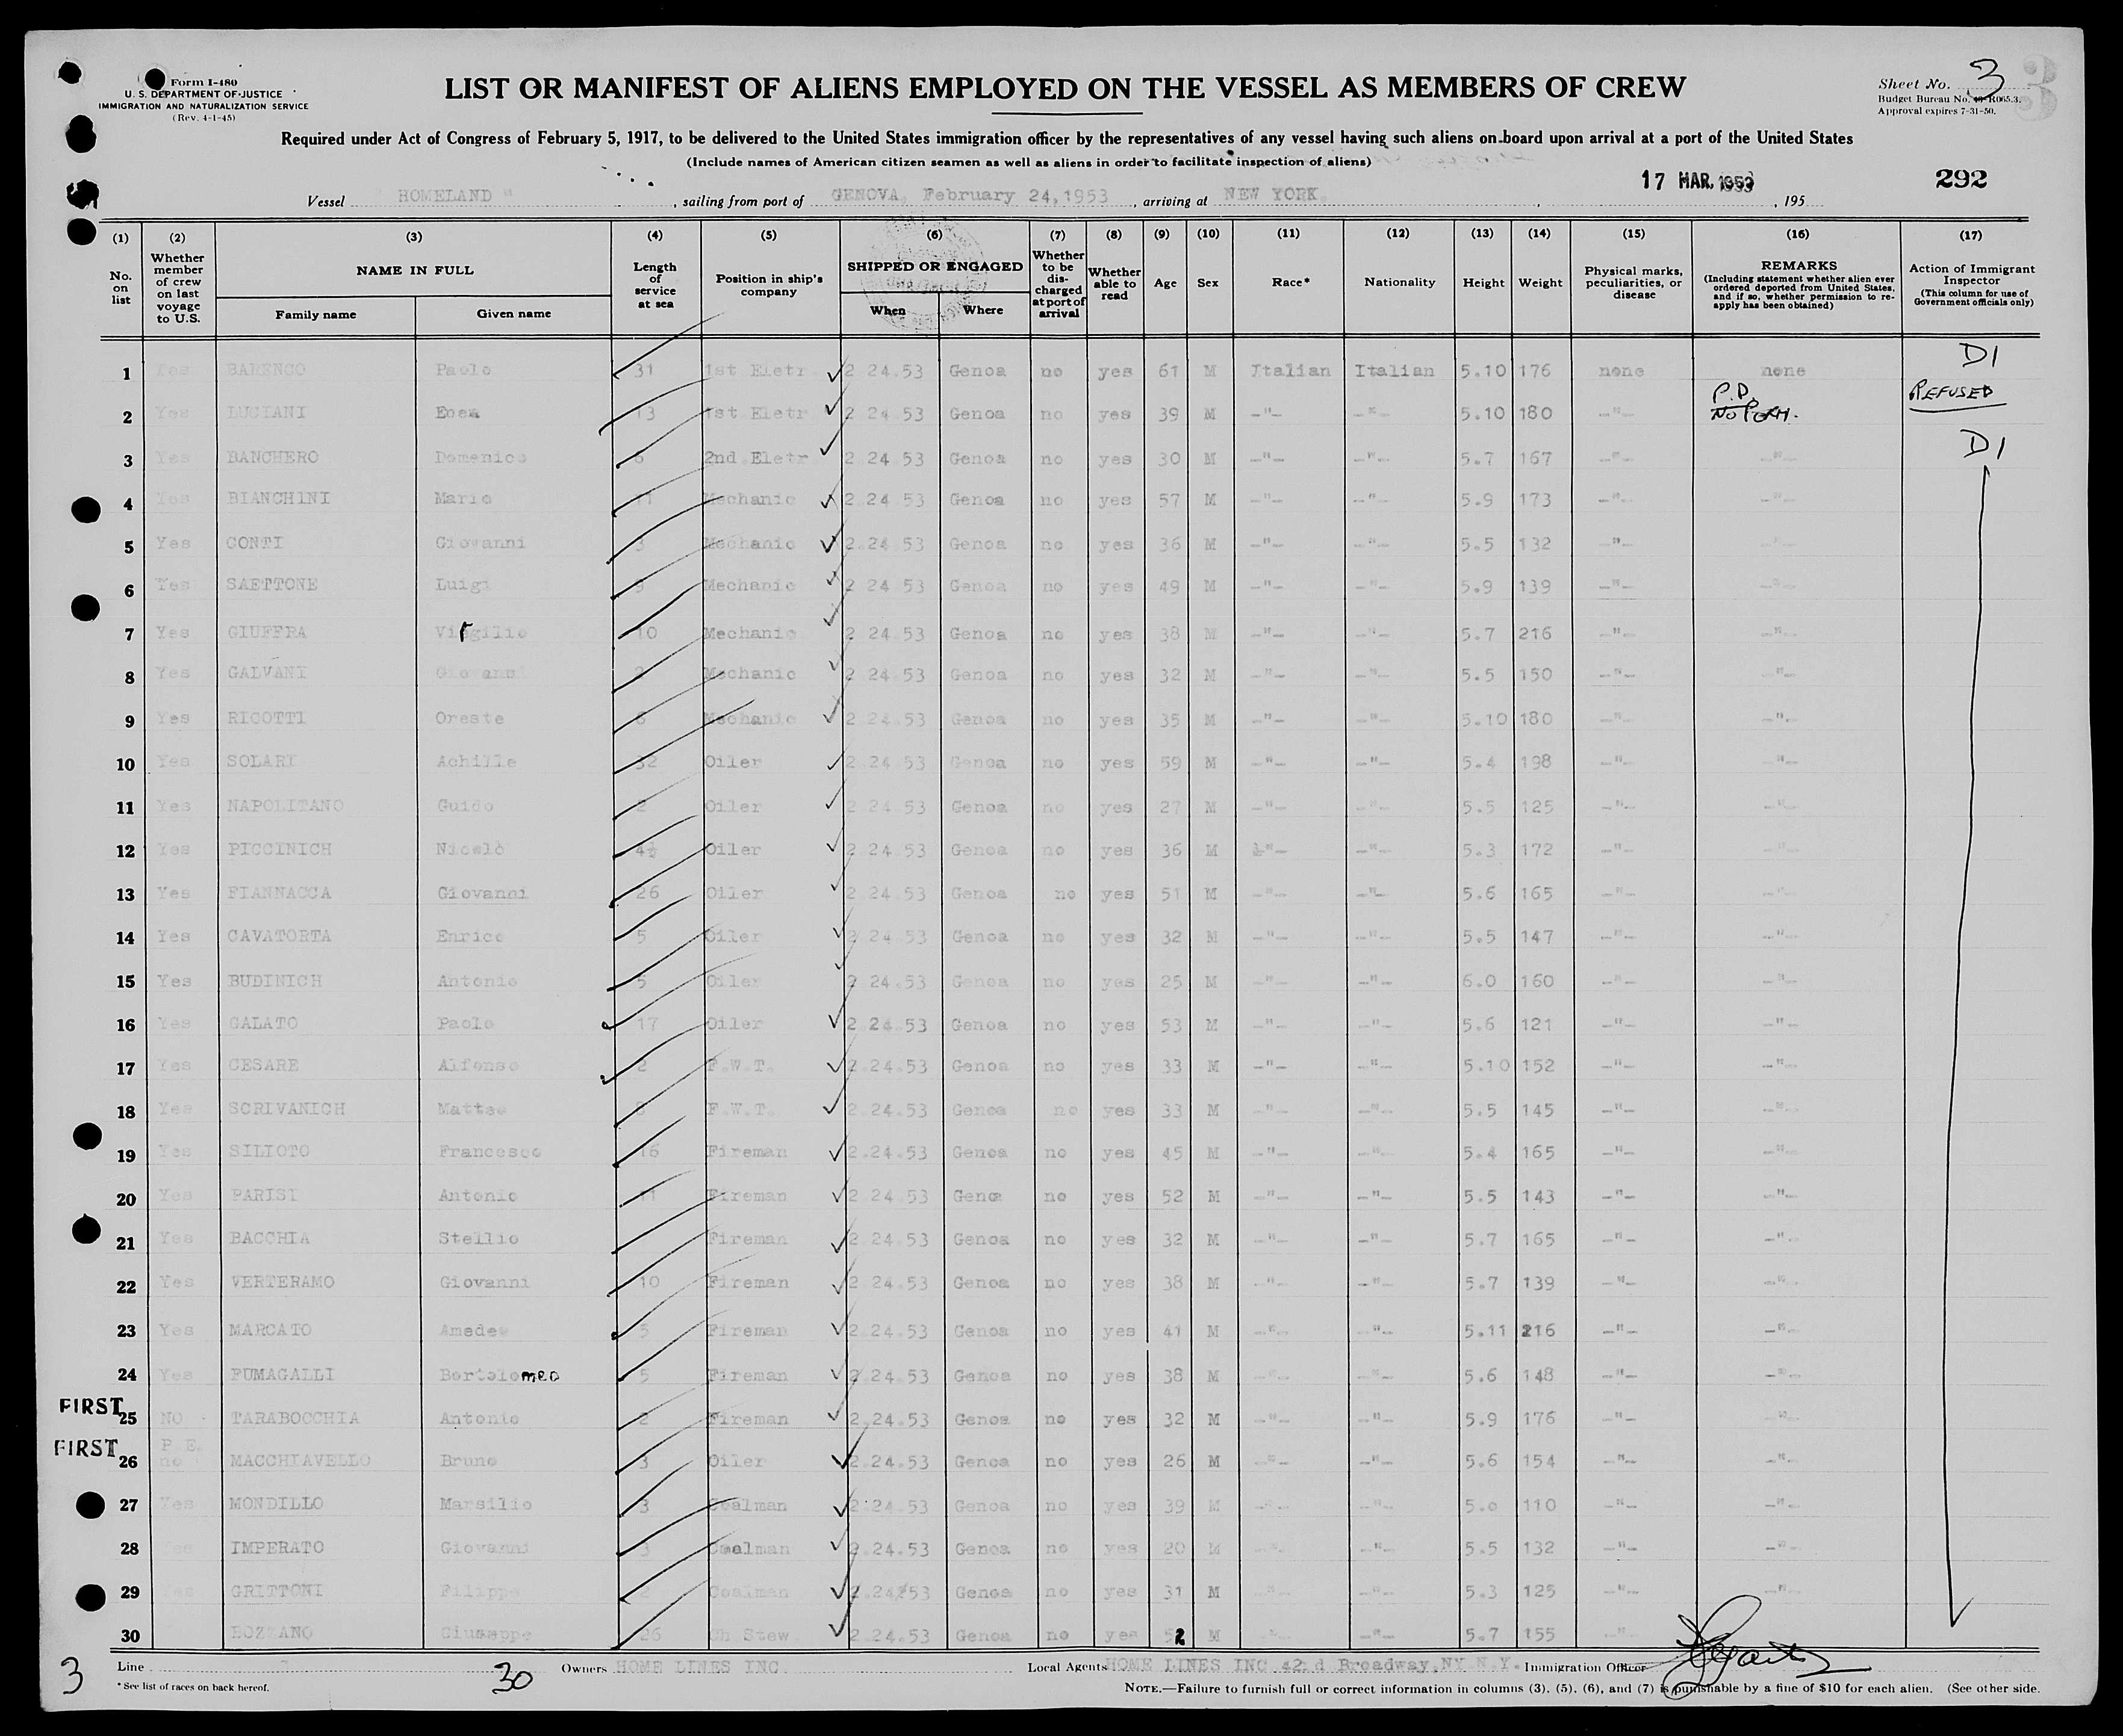 Form I-480
U. S. DEPARTMENT OF JUSTICE
IMMIGRATION AND NATURALIZATION SERVICE
(Rev. 4-1-45)
LIST OR MANIFEST OF ALIENS EMPLOYED ON THE VESSEL AS MEMBERS OF CREW
Sheet No. 3
3
Budget Bureau No. 43-R065.3.
Approval expires 7-31-50.
Required under Act of Congress of February 5, 1917, to be delivered to the United States immigration officer by the representatives of any vessel having such aliens on board upon arrival at a port of the United States
(Include names of American citizen seamen as well as aliens in order to facilitate inspection of aliens)
17 MAR. 1953
292
Vessel " HOMELAND ", sailing from port of GENOVA, February 24,1953, arriving at NEW YORK, , 195
(1) (2) (3) (4) (5) (6) (7) (8) (9) (10) (11) (12) (13) (14) (15) (16) (17)
No. on list
Whether member of crew on last voyage to U.S.
NAME IN FULL
Family name Given name
Length of service at sea
Position in ship's company
SHIPPED OR ENGAGED
When Where
Whether to be discharged at port of arrival
Whether able to read
Age Sex Race* Nationality Height Weight
Physical marks, peculiarities, or disease
REMARKS
(Including statement whether alien ever ordered deported from United States, and if so, whether permission to re-apply has been obtained)
Action of Immigrant Inspector
(This column for use of Government officials only)
1 Yes BARENGO Paolo 31 1st Eletr 2 24.53 Genoa no yes 61 M Italian Italian 5.10 176 none none D1
2 Yes LUCIANI 13 1st Eletr 2 24.53 Genoa no yes 39 M -"- -"- 5.10 180 -"- P.P. REFUSED
3 Yes BANCHERO Domenico 2nd Eletr 2 24 53 Genoa no yes 30 M -"- -"- 5.7 167 -"- -"- D1
4 Yes BIANCHINI Mario 11 Mechanic 2.24 53 Genoa no yes 57 M -"- -"- 5.9 173 -"- -"-
5 Yes CONTI Giovanni 3 Mechanic 2.24 53 Genoa no yes 36 M -"- -"- 5.5 132 -"- -"-
6 Yes SAETTONE Luigi 9 Mechanic 2 24 53 Genoa no yes 49 M -"- -"- 5.9 139 -"- -"-
7 Yes GIUFFRA Virgilio 10 Mechanic 2 24.53 Genoa no yes 38 M -"- -"- 5.7 216 -"- -"-
8 Yes GALVANI Giovanni Mechanic 2 24 53 Genoa no yes 32 M -"- -"- 5.5 150 -"- -"-
9 Yes RICOTTI Oreste 6 Mechanic 2 24.53 Genoa no yes 35 M -"- -"- 5.10 180 -"- -"-
10 Yes SOLARI Achille 32 Oiler 2 24 53 Genoa no yes 59 M -"- -"- 5.4 198 -"- -"-
11 Yes NAPOLITANO Guido 2 Oiler 2 24.53 Genoa no yes 27 M -"- -"- 5.5 125 -"- -"-
12 Yes PICCINICH Nicolò 4½ Oiler 2 24.53 Genoa no yes 36 M -"- -"- 5.3 172 -"- -"-
13 Yes FIANNACCA Giovanni 26 Oiler 2 24.53 Genoa no yes 51 M -"- -"- 5.6 165 -"- -"-
14 Yes CAVATORTA Enrico 5 Oiler 2 24 53 Genoa no yes 32 M -"- -"- 5.5 147 -"- -"-
15 Yes BUDINICH Antonio 5 Oiler 2 24.53 Genoa no yes 25 M -"- -"- 6.0 160 -"- -"-
16 Yes GALATO Paolo 17 Oiler 2 24.53 Genoa no yes 53 M -"- -"- 5.6 121 -"- -"-
17 Yes CESARE Alfonso 2 F.W.T. 2.24.53 Genoa no yes 33 M -"- -"- 5.10 152 -"- -"-
18 Yes SCRIVANICH Matteo F.W.T. 2.24.53 Genoa no yes 33 M -"- -"- 5.5 145 -"- -"-
19 Yes SILIOTO Francesco 16 Fireman 2.24.53 Genoa no yes 45 M -"- -"- 5.4 165 -"- -"-
20 Yes PARISI Antonio 11 Fireman 2 24.53 Genoa no yes 52 M -"- -"- 5.5 143 -"- -"-
21 Yes BACCHIA Stellio Fireman 2 24.53 Genoa no yes 32 M -"- -"- 5.7 165 -"- -"-
22 Yes VERTERAMO Giovanni 10 Fireman 2 24.53 Genoa no yes 38 M -"- -"- 5.7 139 -"- -"-
23 Yes MARCATO Amedeo 5 Fireman 2 24.53 Genoa no yes 41 M -"- -"- 5.11 216 -"- -"-
24 Yes FUMAGALLI Bortolomeo 5 Fireman 2 24.53 Genoa no yes 38 M -"- -"- 5.6 148 -"- -"-
FIRST 25 NO TARABOCCHIA Antonio 2 Fireman 2.24.53 Genoa no yes 32 M -"- -"- 5.9 176 -"- -"-
FIRST 26 P.E. no MACCHIAVELLO Bruno 3 Oiler 2.24.53 Genoa no yes 26 M -"- -"- 5.6 154 -"- -"-
27 Yes MONDILLO Marsilio 3 Coalman 2 24.53 Genoa no yes 39 M -"- -"- 110 -"- -"-
28 Yes IMPERATO Giovanni 3 Coalman 2.24.53 Genoa no yes 20 M -"- -"- 5.5 132 -"- -"-
29 Yes GRITTONI Filippo Coalman 2.24.53 Genoa no yes 31 M -"- -"- 5.3 125 -"- -"-
30 BOZZANO Giuseppe 26 Ch Stew. 2.24.53 Genoa no yes 52 M -"- -"- 5.7 155 -"-
3
Line 30 Owners HOME LINES INC. Local Agents HOME LINES INC 42nd Broadway, NY N.Y. Immigration Officer
* See list of races on back hereof.
NOTE.—Failure to furnish full or correct information in columns (3), (5), (6), and (7) is punishable by a fine of $10 for each alien. (See other side.